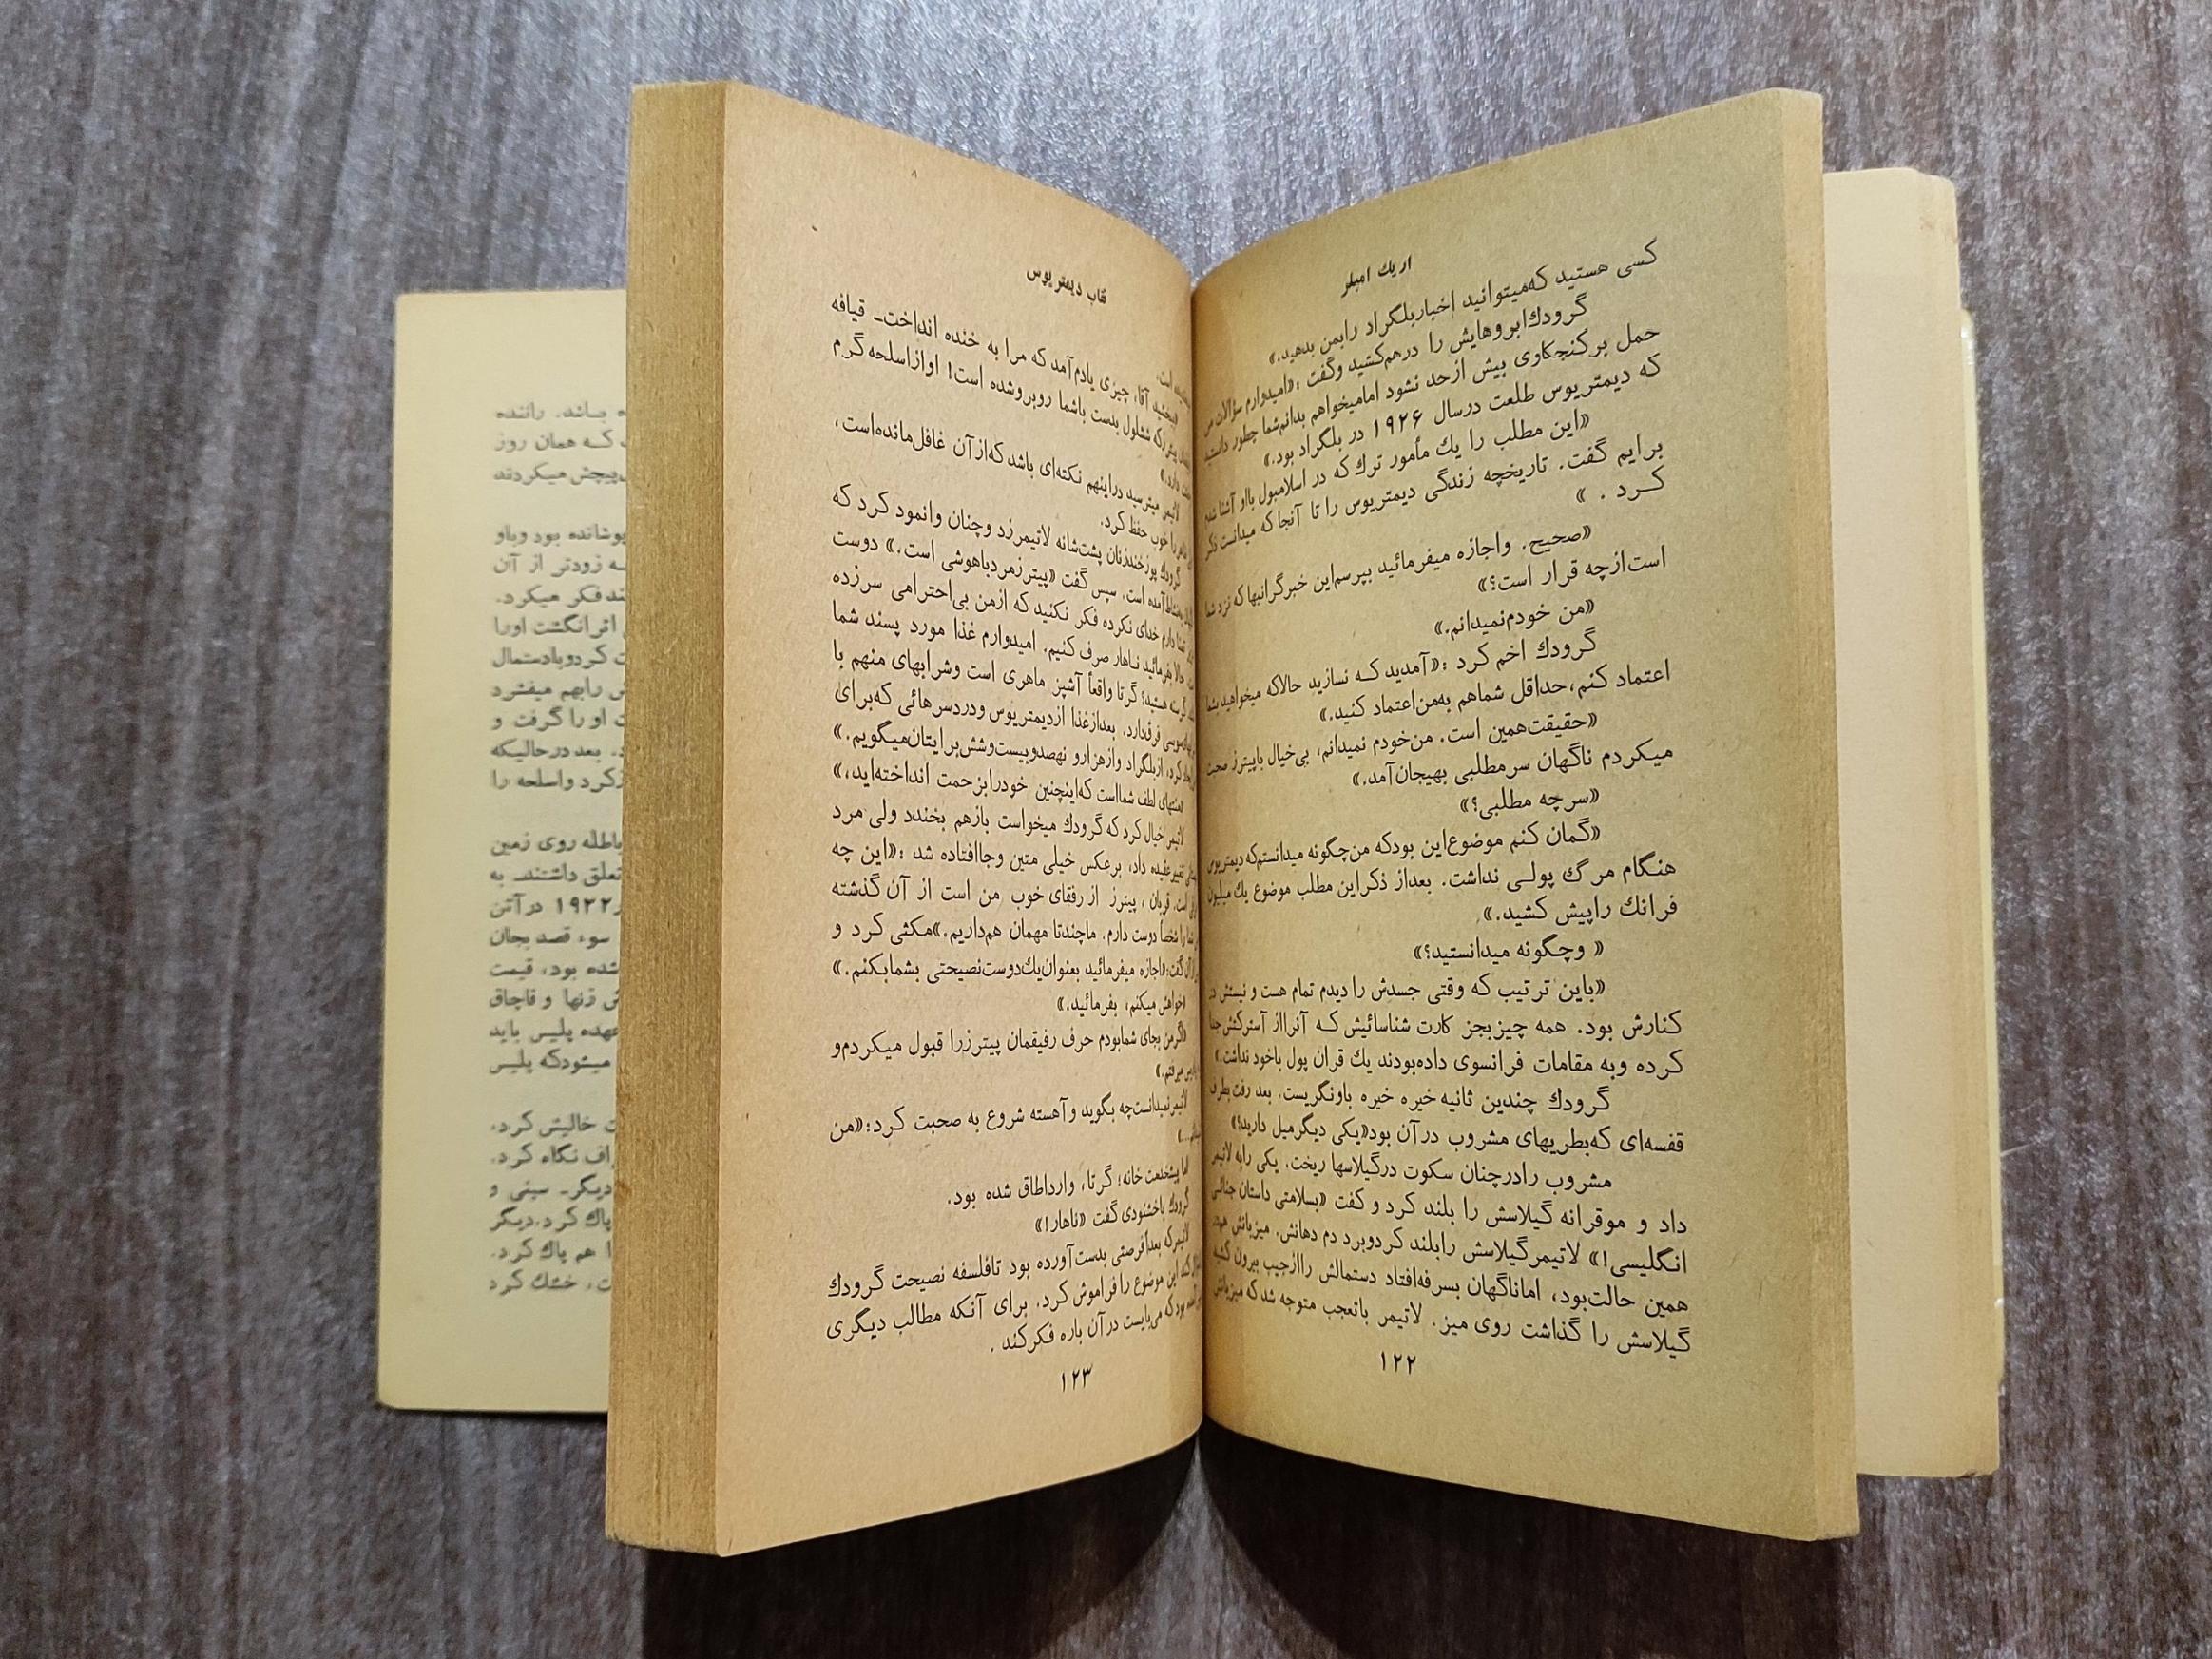 اریك امبلر
کسی هستید که‌میتوانید اخباربلگراد رابمن بدهید.»
گرودك‌ابروهایش را درهم‌کشید وگفت :«امیدوارم سؤالات من
حمل برکنجکاوی بیش ازحد نشود امامیخواهم بدانم‌شما چطور دانستید
که دیمتریوس طلعت درسال ۱۹۲۶ در بلگراد بود.»
«این مطلب را یك مأمور ترك که در اسلامبول بااو آشنا شدم
برایم گفت. تاریخچه زندگی دیمتریوس را تا آنجا که میدانست ذکر
کـرد . »
«صحیح. واجازه میفرمائید بپرسم‌این خبرگرانبها که نزد شما
است‌ازچه قرار است؟»
«من خودم‌نمیدانم.»
گرودك اخم کرد :«آمدید کــه نسازید حالاکه میخواهید بشما
اعتماد کنم،حداقل شماهم به‌من‌اعتماد کنید.»
«حقیقت‌همین است. من‌خودم نمیدانم، بی‌خیال باپیترز صحبت
میکردم ناگهان سرمطلبی بهیجان‌آمد.»
«سرچه مطلبی؟»
«گمان کنم موضوع‌این بودکه من‌چگونه میدانستم‌که دیمتریوس
هنگام مرگ پولـی نداشت. بعداز ذکراین مطلب موضوع یك میلیون
فرانك راپیش کشید.»
« وچگونه میدانستید؟»
«باین ترتیب که وقتی جسدش را دیدم تمام هست و نیستش در
کنارش بود. همه چیزبجز کارت شناسائیش کــه آنرااز آسترکتش جدا
کرده وبه مقامات فرانسوی داده‌بودند یك قران پول باخود نداشت.»
گرودك چندین ثانیه خیره خیره باونگریست. بعد رفت بطرف
قفسه‌ای که‌بطریهای مشروب درآن بود«یکی دیگرمیل دارید؟»
مشروب رادرچنان سکوت درگیلاسها ریخت. یکی رابه لاتیمر
داد و موقرانه گیلاسش را بلند کرد و کفت «بسلامتی داستان جنائی
انگلیسی!» لاتیمرگیلاسش رابلند کردوبرد دم دهانش. میزبانش هم‌در
همین حالت‌بود، اماناگهان بسرفه‌افتاد دستمالش راازجیب بیرون کشید
گیلاسش را گذاشت روی میز. لاتیمر باتعجب متوجه شد که میزبانش
۱۲۲
نقاب دیمتریوس
است.
«ببخشید آقا، چیزی یادم‌آمد که مرا به خنده انداخت- قیافه
پیترزکه ششلول بدست باشما روبروشده است! اوازاسلحه گرم
دارد.»
لاتیمر میترسید دراینهم نکته‌ای باشد که‌ازآن غافل‌مانده‌است،
را خوب حفظ کرد.
گرودك پوزخندزنان پشت‌شانه لاتیمرزد وچنان وانمود کرد که
آمده است. سپس گفت «پیترزمردباهوشی است.» دوست
دارم خدای نکرده فکر نکنید که ازمن بی‌احترامی سرزده
حالا بفرمائید نـاهار صرف کنیم. امیدوارم غذا مورد پسند شما
گرسنه هستید؟ گرتا واقعاً آشپز ماهری است وشرابهای منهم با
فرق‌دارد. بعدازغذا ازدیمتریوس ودردسرهائی که‌برای
کرد، ازبلگراد وازهزارو نهصدوبیست‌وشش‌برایتان‌میگویم.»
«منتهای لطف شمااست که‌اینچنین خودرابزحمت انداخته‌اید،»
لاتیمر خیال کرد که گرودك میخواست بازهم بخندد ولی مرد
تغییرعقیده داد، برعکس خیلی متین وجاافتاده شد :«این چه
است. قربان ، پیترز از رفقای خوب من است از آن گذشته
را شخصاً دوست دارم. ماچندتا مهمان هم‌داریم.»مکثی کرد و
گفت:«اجازه میفرمائید بعنوان‌یك‌دوست‌نصیحتی بشمابکنم.»
«خواهش میکنم، بفرمائید.»
«اگرمن بجای شمابودم حرف رفیقمان پیترزرا قبول میکردم‌و
میرفتم.»
لاتیمرنمیدانست‌چه بگوید وآهسته شروع به صحبت کرد:«من
اما پیشخدمت خانه؛ گرتا، وارداطاق شده بود.
گرودك باخشنودی گفت «ناهار!»
لاتیمرکه بعدافرصتی بدست‌آورده بود تافلسفه نصیحت گرودك
کند این موضوع را فراموش کرد. برای آنکه مطالب دیگری
بود که می‌بایست درآن باره فکرکند .
۱۲۳
بـاند. راننده
کــه همان روز
پیچش میکردند
پوشانده بود وباو
زودتر از آن
فکر میکرد.
اثرانگشت اورا
کردوبادستمال
رابهم میفشرد
اورا گرفت و
بعد درحالیکه
کرد واسلحه را
باطله روی زمین
تعلق داشتند. به
۱۹۳۲ درآتن
سوء قصد بجان
شده بود، قیمت
زنها و قاچاق
عهده پلیس باید
میشودکه پلیس
خالیش کرد،
نگاه کرد.
دیگر- سینی و
پاك کرد.دیگر
هم پاك کرد.
خشك کرد